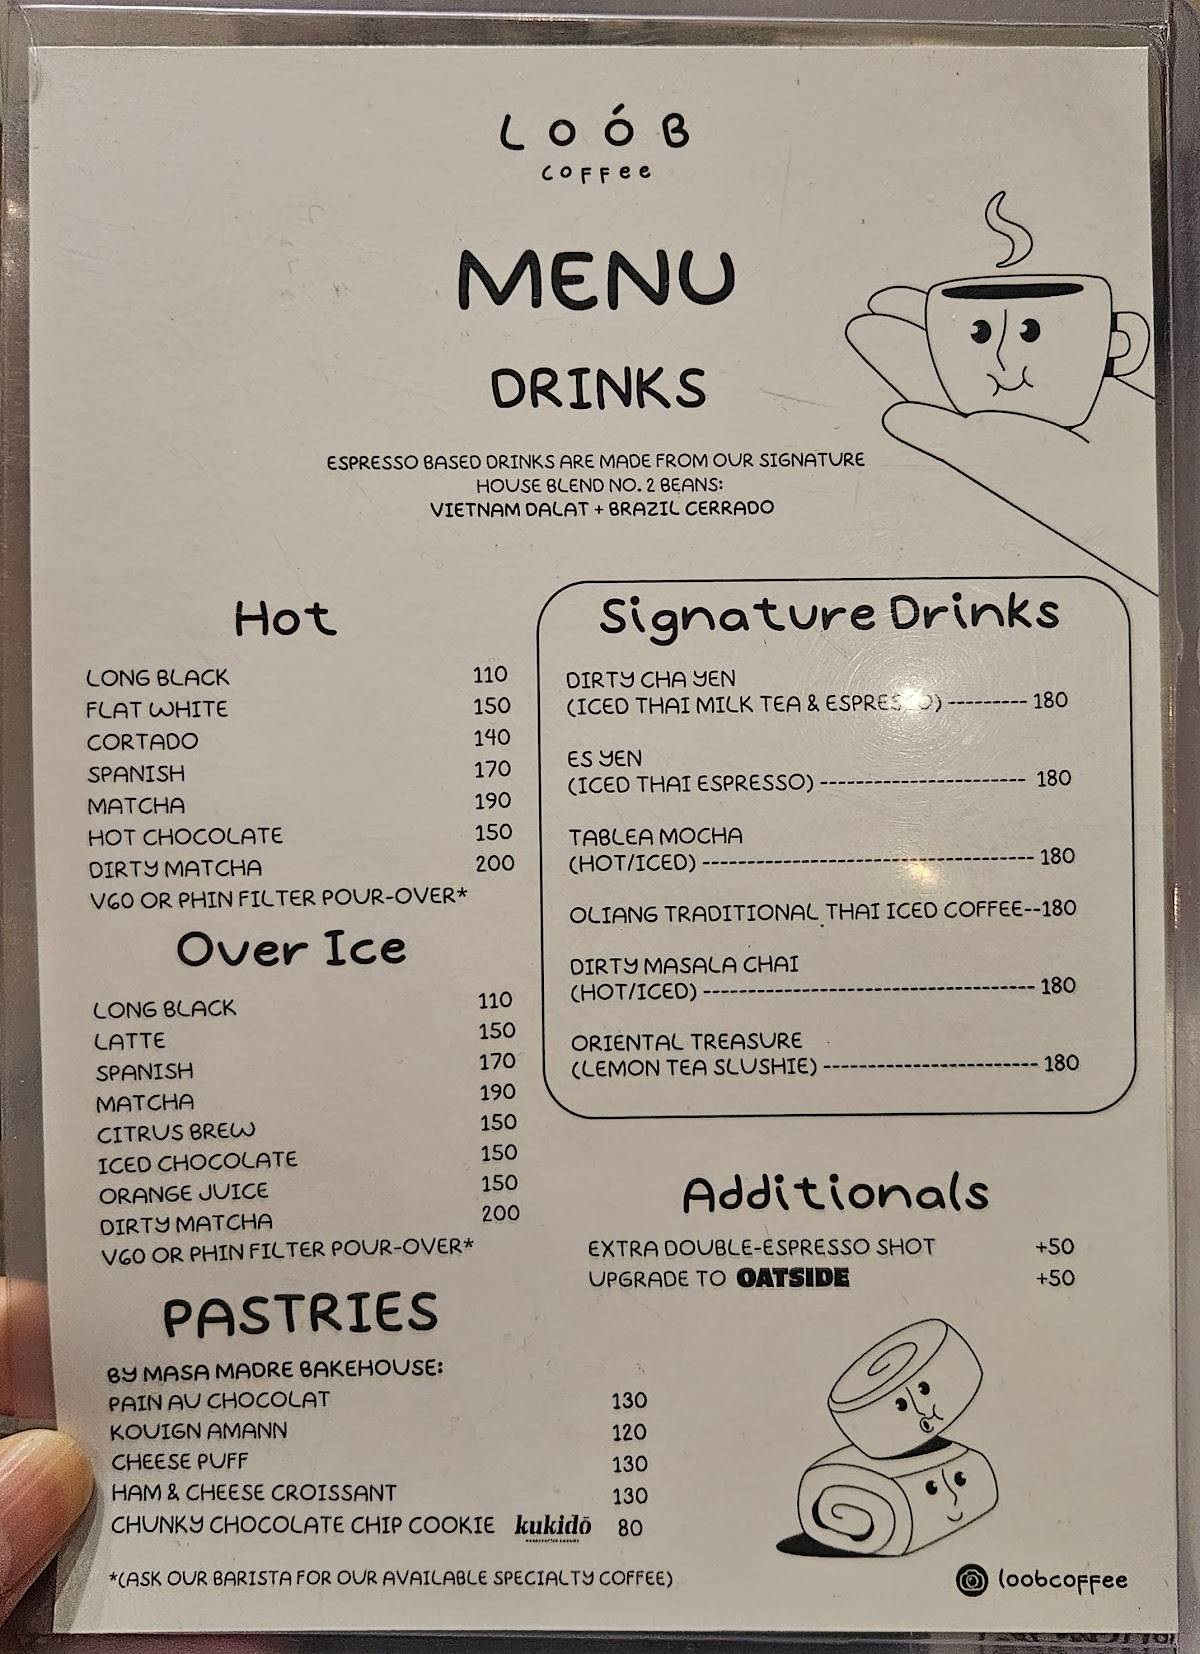 LOÓB
COFFEE
MENU
DRINKS
ESPRESSO BASED DRINKS ARE MADE FROM OUR SIGNATURE
HOUSE BLEND NO. 2 BEANS:
VIETNAM DALAT + BRAZIL CERRADO
Hot
LONG BLACK 110
FLAT WHITE 150
CORTADO 140
SPANISH 170
MATCHA 190
HOT CHOCOLATE 150
DIRTY MATCHA 200
V60 OR PHIN FILTER POUR-OVER*
Over Ice
LONG BLACK 110
LATTE 150
SPANISH 170
MATCHA 190
CITRUS BREW 150
ICED CHOCOLATE 150
ORANGE JUICE 150
DIRTY MATCHA 200
V60 OR PHIN FILTER POUR-OVER*
Signature Drinks
DIRTY CHA YEN
(ICED THAI MILK TEA & ESPRESSO) --------- 180
ES YEN
(ICED THAI ESPRESSO) ----------------------- 180
TABLEA MOCHA
(HOT/ICED) ------------------------------------- 180
OLIANG TRADITIONAL THAI ICED COFFEE--180
DIRTY MASALA CHAI
(HOT/ICED) ------------------------------------- 180
ORIENTAL TREASURE
(LEMON TEA SLUSHIE) ------------------------ 180
Additionals
EXTRA DOUBLE-ESPRESSO SHOT +50
UPGRADE TO OATSIDE +50
PASTRIES
BY MASA MADRE BAKEHOUSE:
PAIN AU CHOCOLAT 130
KOUIGN AMANN 120
CHEESE PUFF 130
HAM & CHEESE CROISSANT 130
CHUNKY CHOCOLATE CHIP COOKIE kukidō 80
*(ASK OUR BARISTA FOR OUR AVAILABLE SPECIALTY COFFEE)
loobcoffee